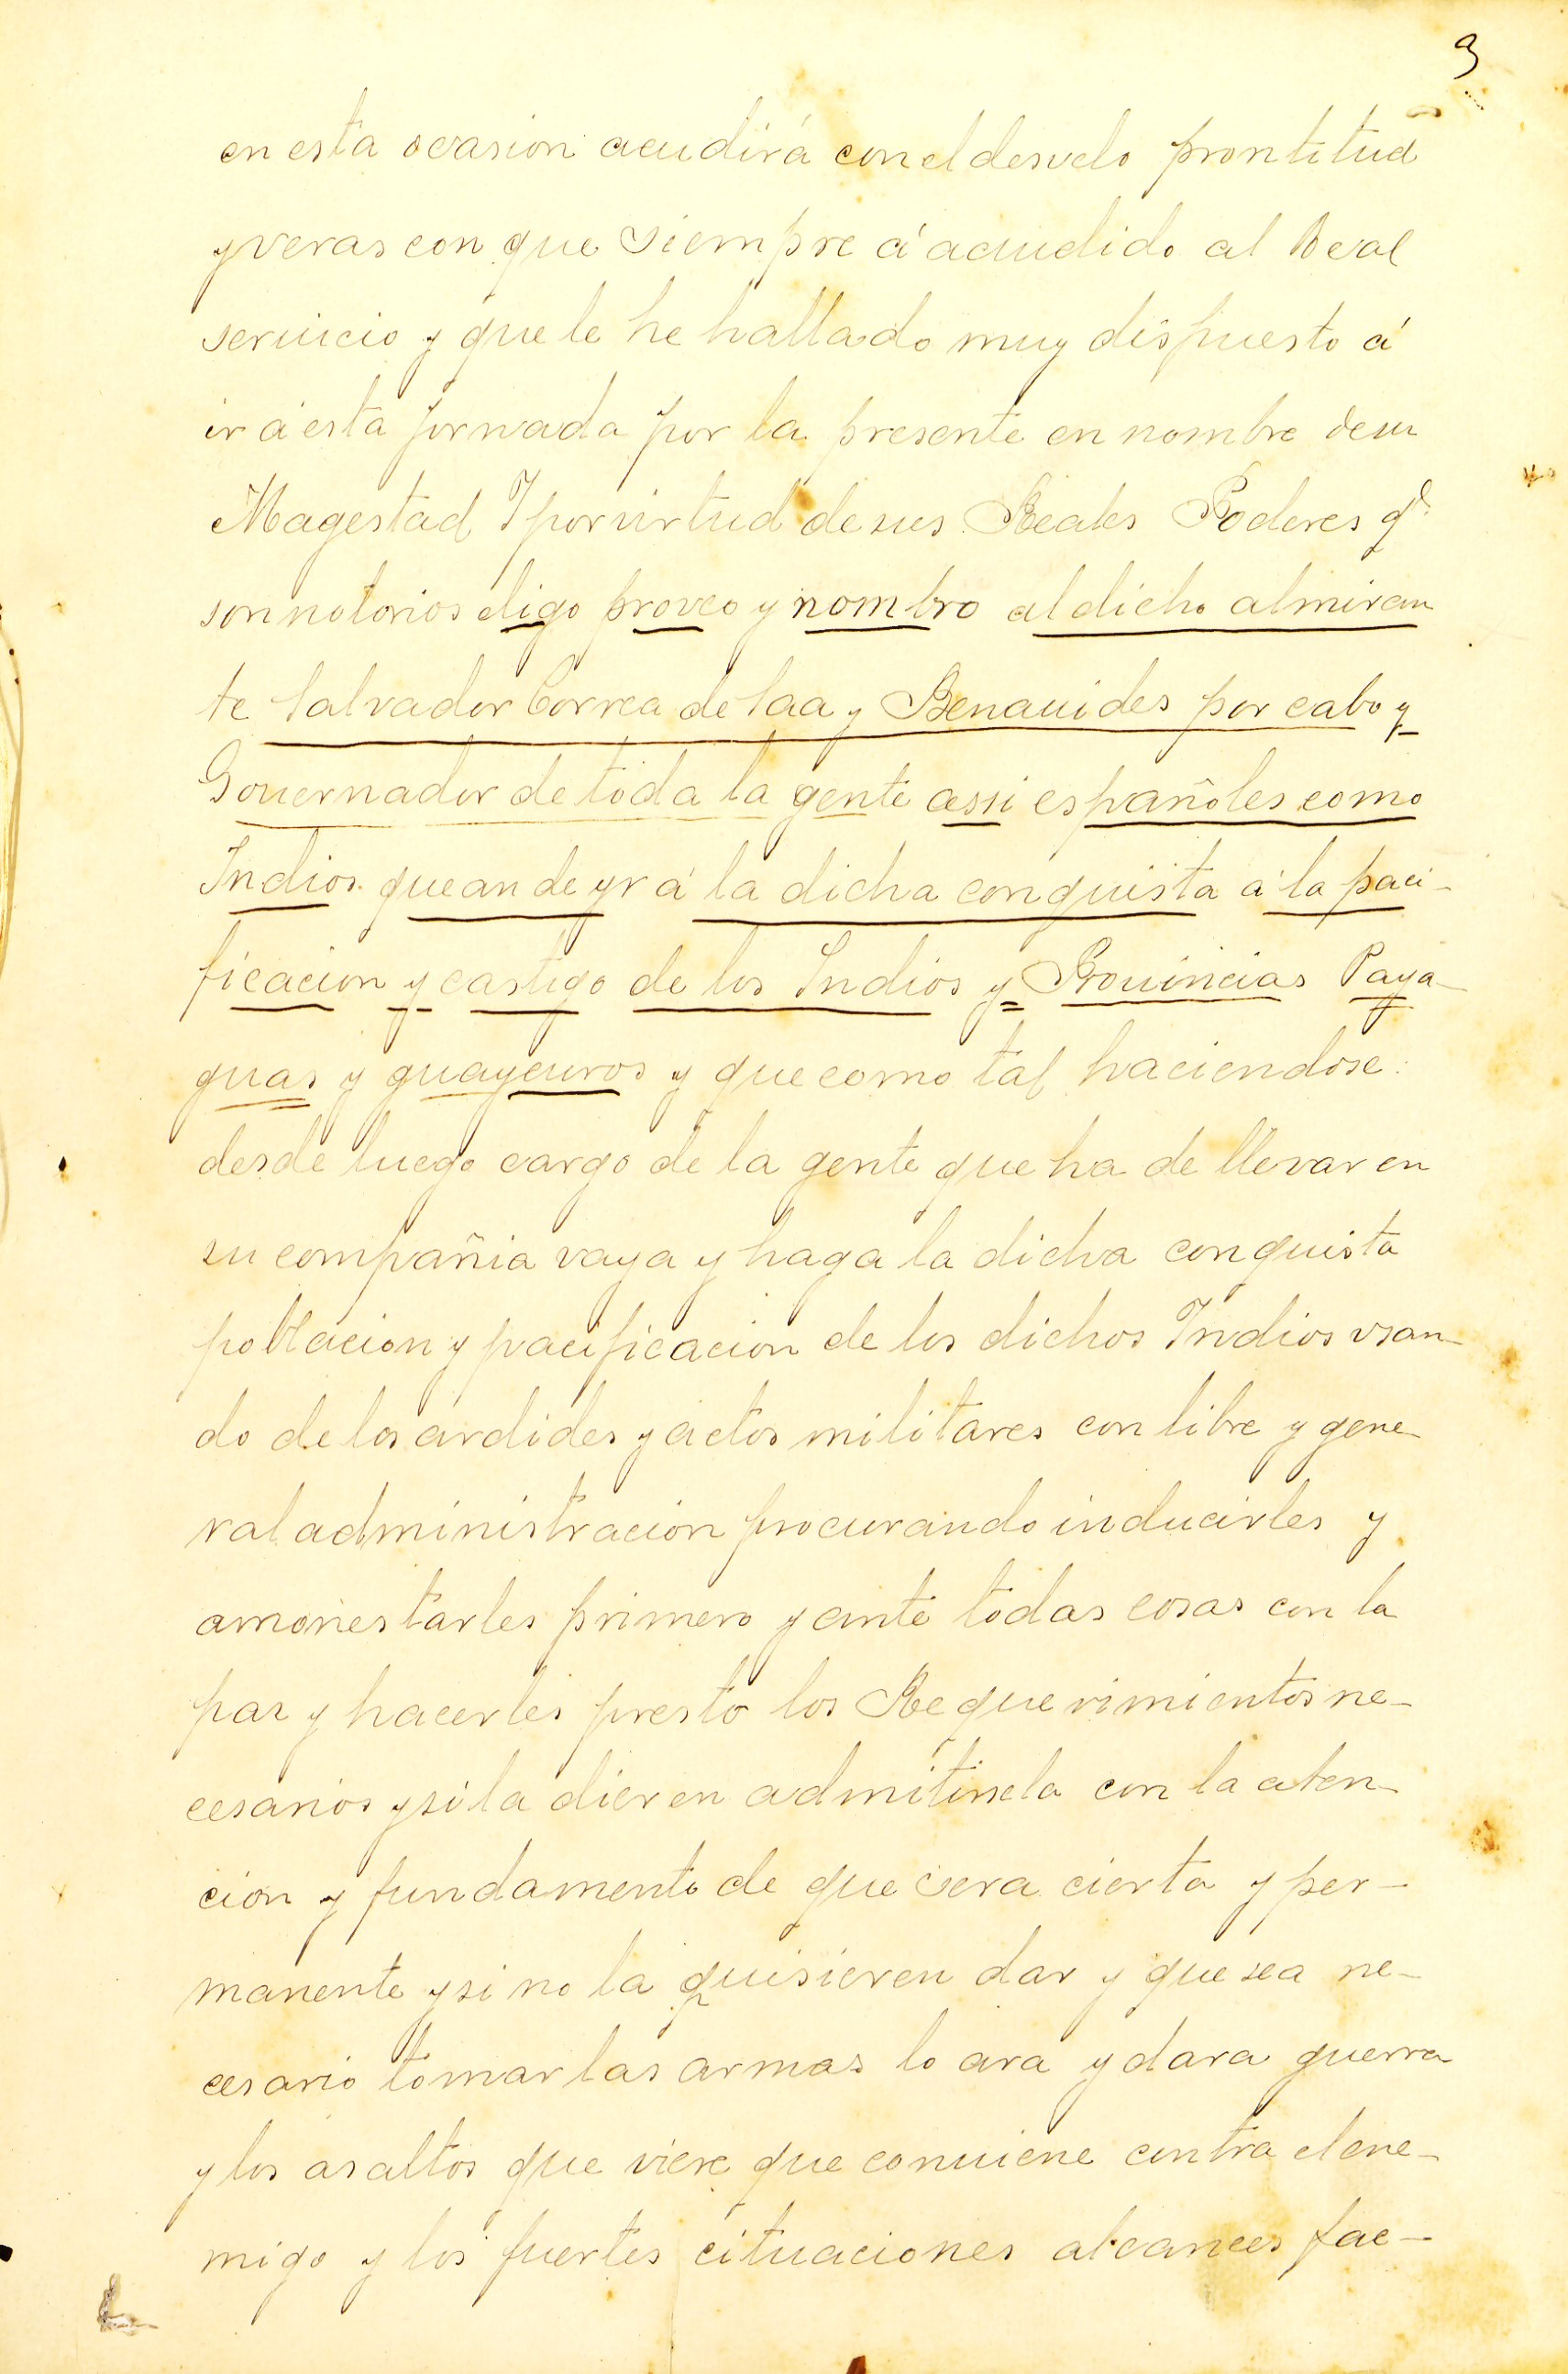 3
en esta ocasion acudirá con el desvelo prontitud
y veras con que siempre á acudido al Real
seruicio y que le he hallado muy dispuesto á
ir á esta jornada por la presente en nombre de su
Magestad I por virtud de sus Reales Poderes q.e
son notorios eligo proveo y nombro al dicho almiran
te Salvador Correa de Saa y Benauides por cabo y
Gouernador de toda la gente assi españoles como
Indios que an de yr á la dicha conquista á la paci-
ficacion y castigo de los Indios y Prouincias Paya-
guas y guaycuros y que como tal haciendose
desde luego cargo de la gente que ha de llevar en
su compañia vaya y haga la dicha conquista
poblacion y pacificacion de los dichos Indios vsan-
do de los ardides y actos militares con libre y gene-
ral administracion procurando inducirles y
amonestarles primero y ante todas cosas con la
paz y hacerles presto los Requerimientos ne-
cesarios y si la dieren admitirsela con la aten-
cion y fundamento de que sera cierta y per-
manente y si no la quisieren dar y que sea ne-
cesario tomar las armas lo ara y dara guerra
y los asaltos que viere que conuiene contra el ene-
migo y los fuertes cituaciones alcances fac-